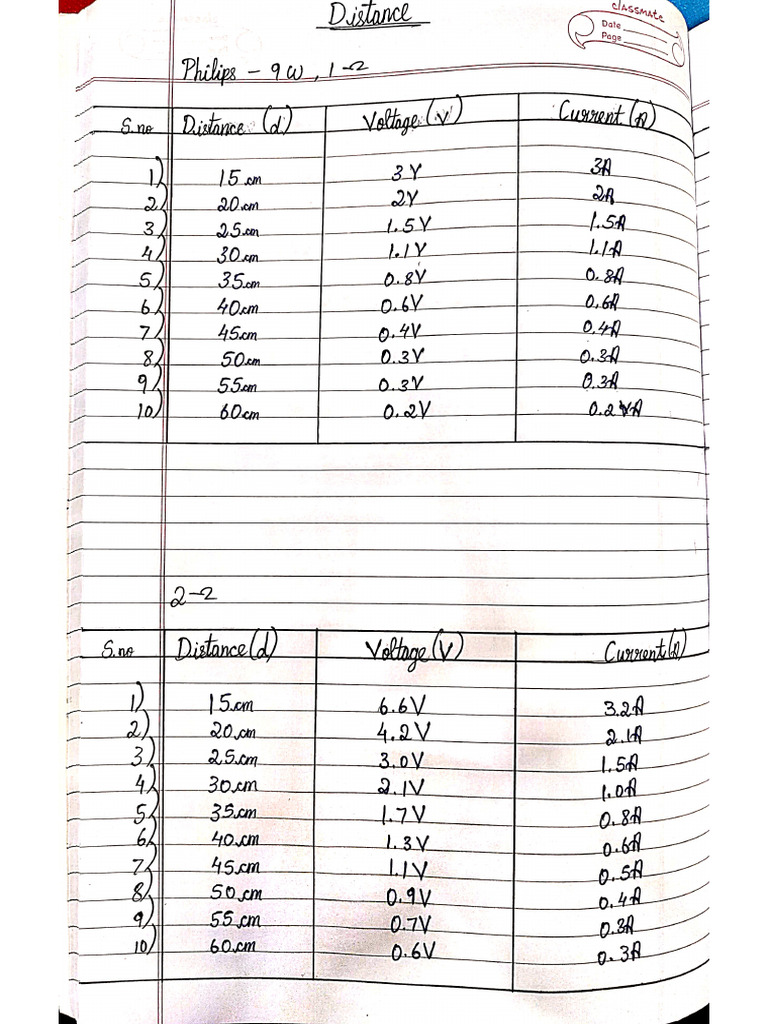 Distance
classmate
Date
Page
Philips - 9W, 1-Ω
S.no Distance (d) Voltage (V) Current (A)
1) 15cm 3V 3A
2) 20cm 2V 2A
3) 25cm 1.5V 1.5A
4) 30cm 1.1V 1.1A
5) 35cm 0.8V 0.8A
6) 40cm 0.6V 0.6A
7) 45cm 0.4V 0.4A
8) 50cm 0.3V 0.3A
9) 55cm 0.3V 0.3A
10) 60cm 0.2V 0.2 A
2-Ω
S.no Distance(d) Voltage(V) Current(A)
1) 15cm 6.6V 3.2A
2) 20cm 4.2V 2.1A
3) 25cm 3.0V 1.5A
4) 30cm 2.1V 1.0A
5) 35cm 1.7V 0.8A
6) 40cm 1.3V 0.6A
7) 45cm 1.1V 0.5A
8) 50cm 0.9V 0.4A
9) 55cm 0.7V 0.3A
10) 60cm 0.6V 0.3A